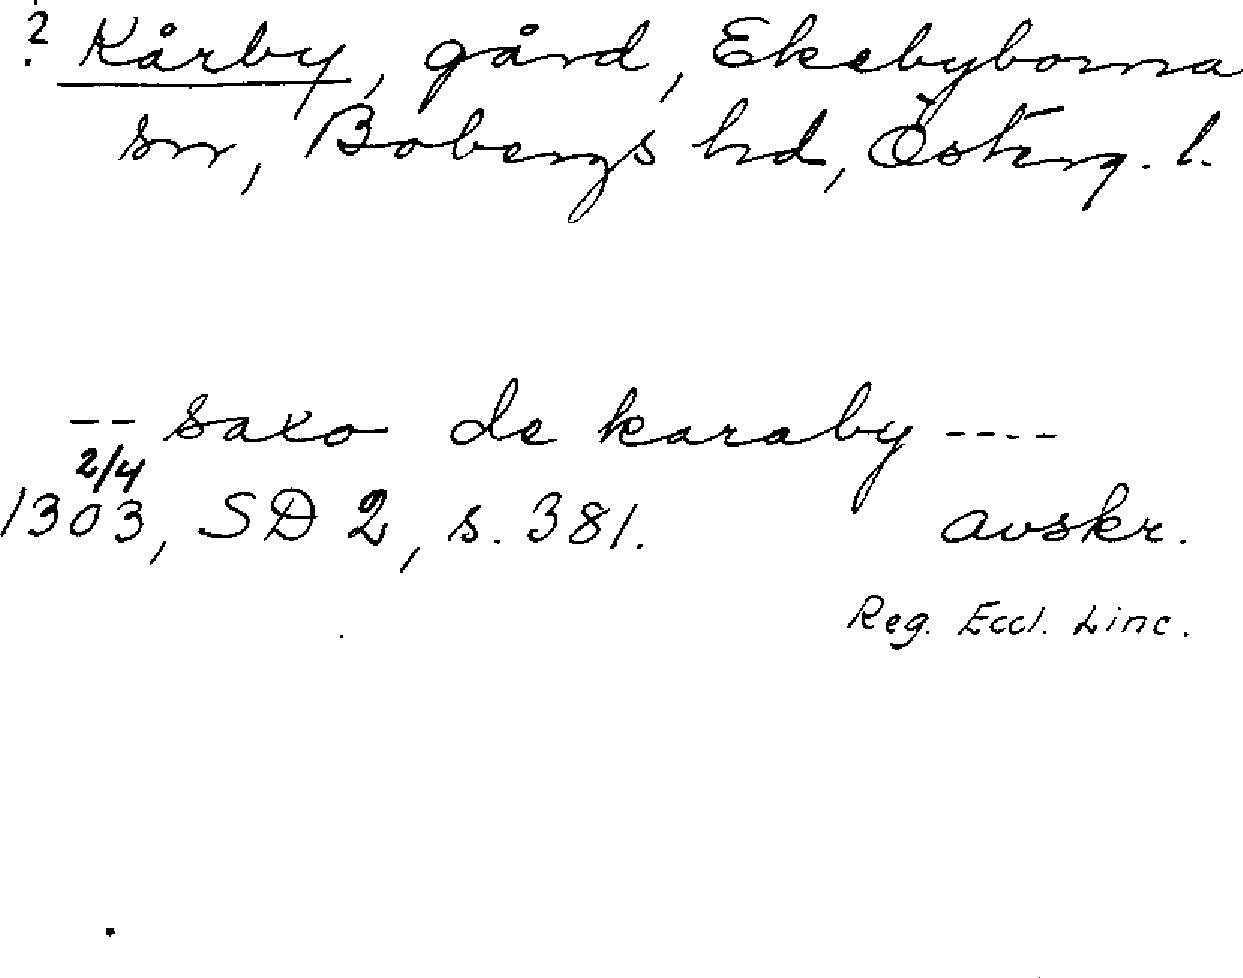 ? Kårby, gård, Ekebyborna
sn, Bobergs hd, Österg. l.
-- saxo de karaby ----
2/4
1303, SD 2, s. 381. avskr.
Reg. Eccl. Linc.